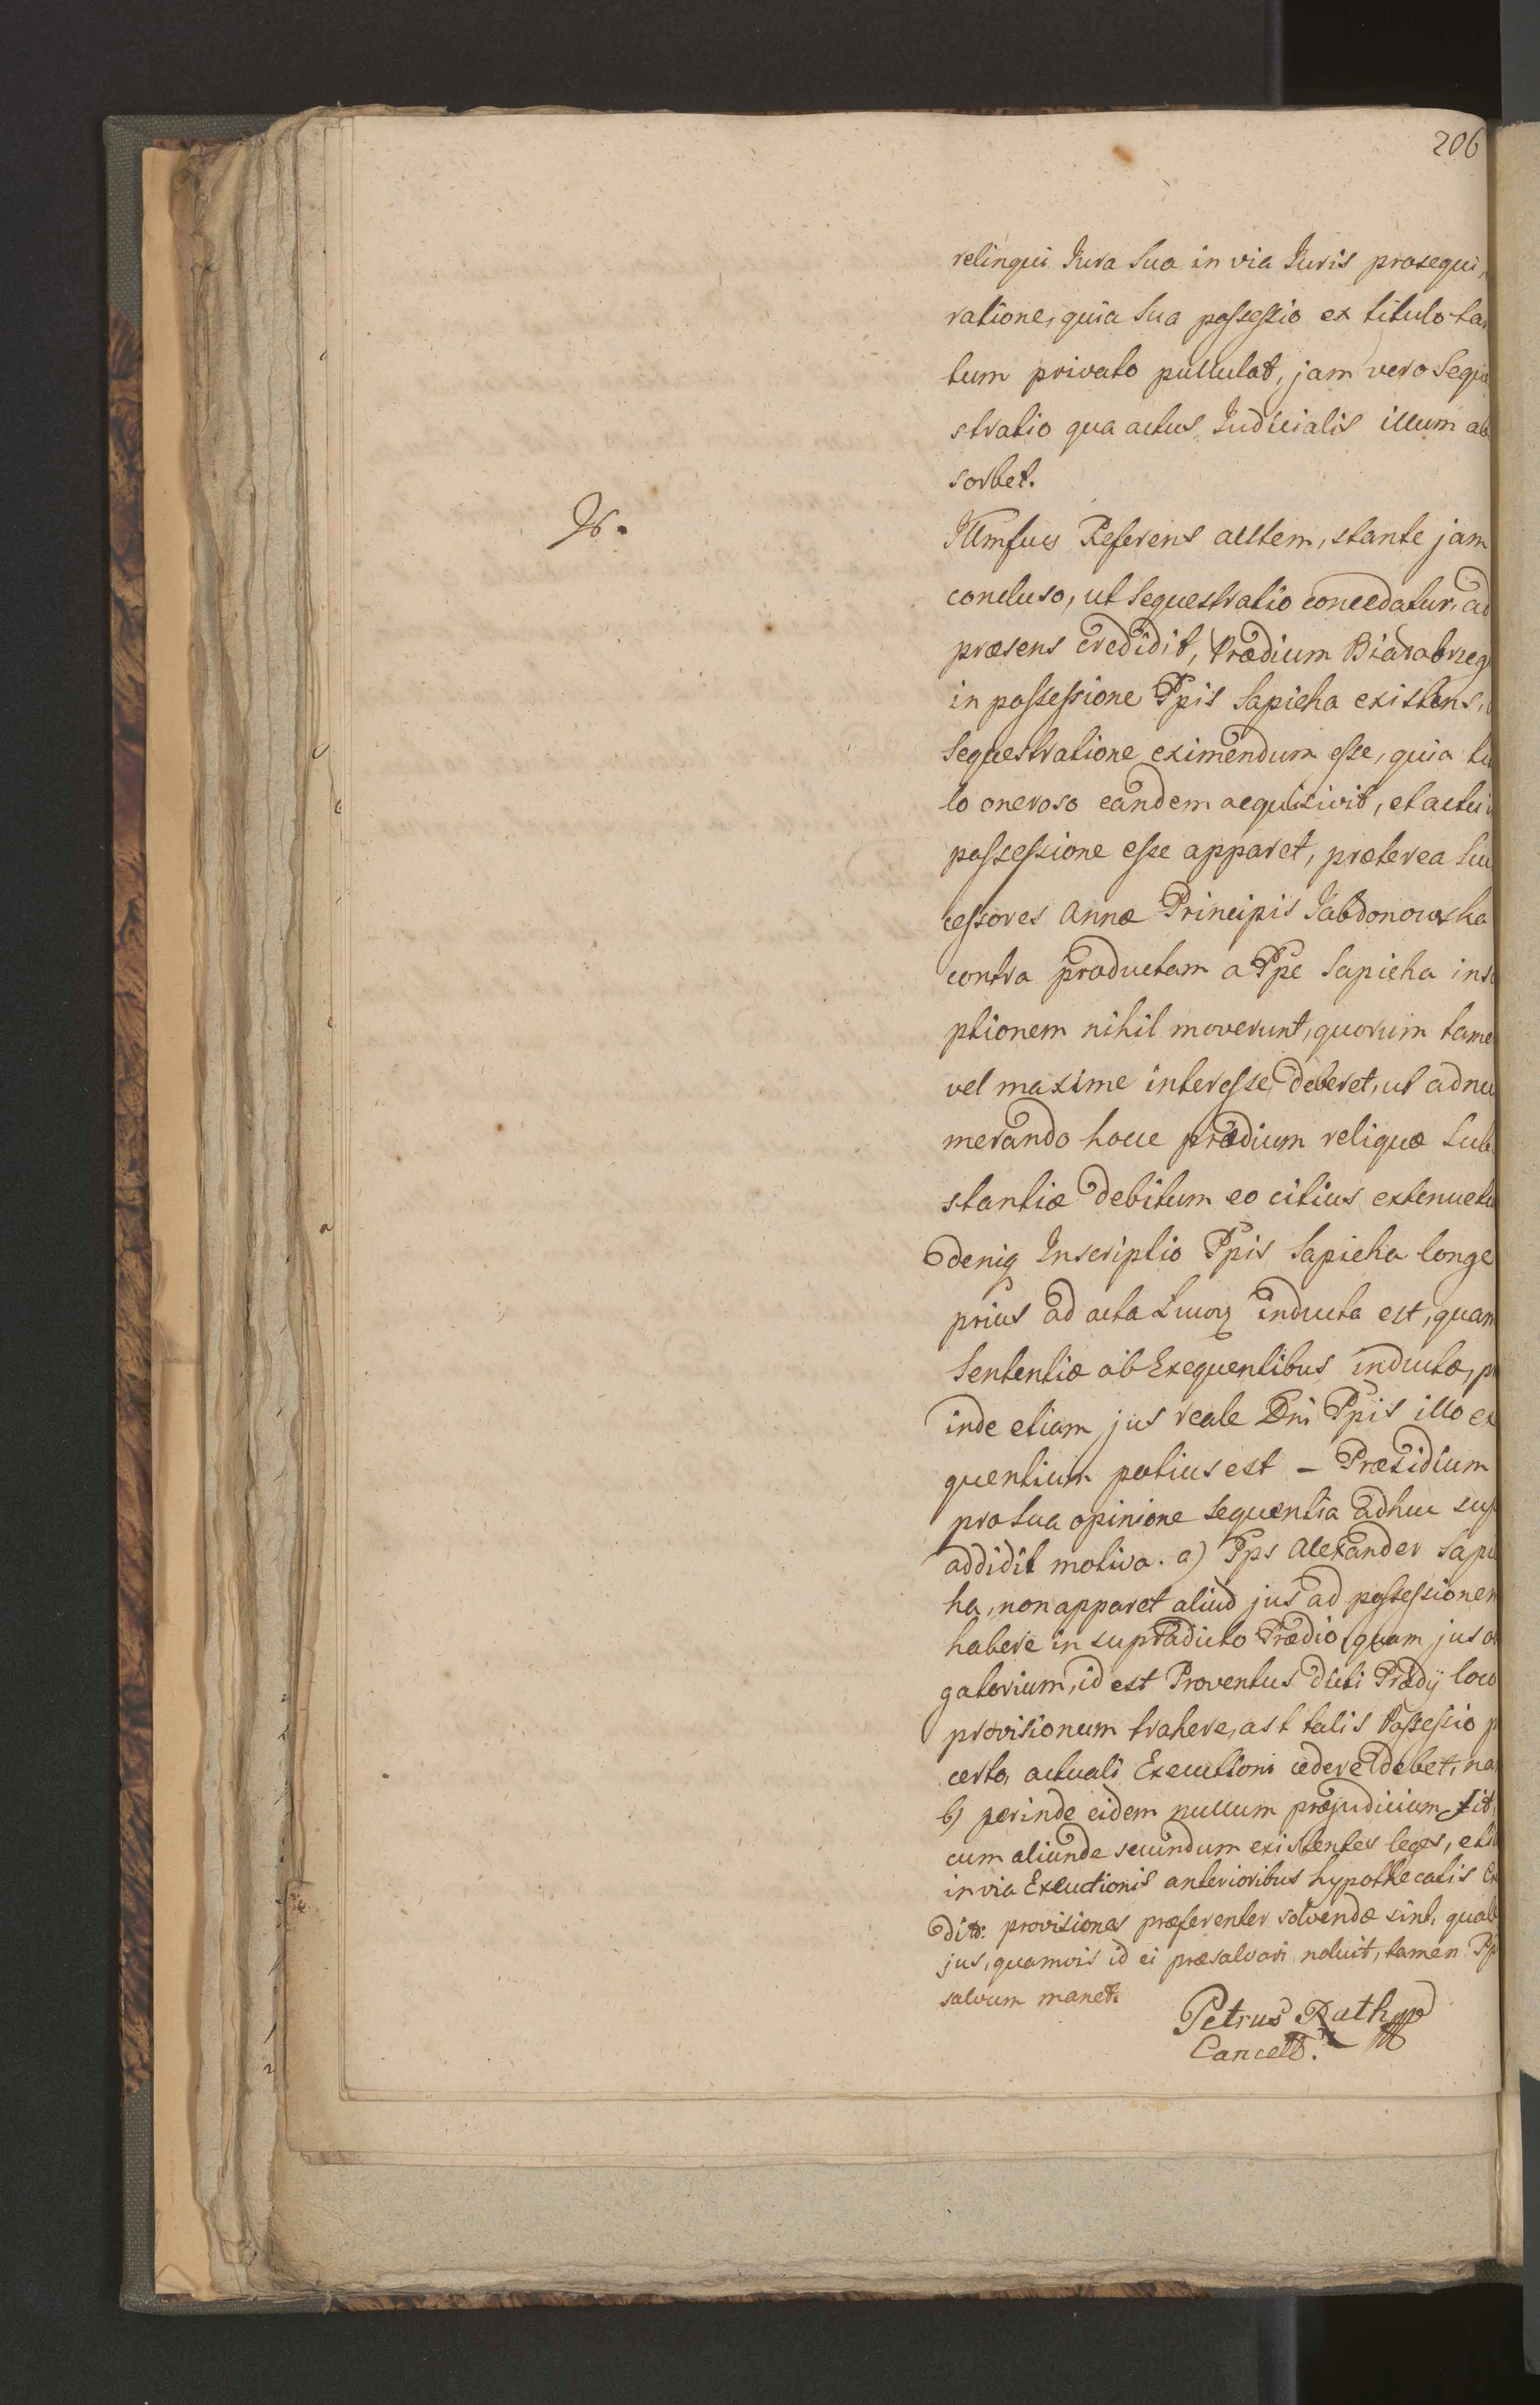 206
relinqui Jura Sua in via Juris prosequi,
ratione, quia Sua possessio ex titulo tan
tum privato pullulat, jam vero Seque
stratio qua actus Judicialis illum ab
sorbet.
Referens autem, stante jam
concluso, ut Sequestratio concedatur, ad
præsens credidit, Prædium Biaxobrzeg
in possessione Ppis Sapieha existens,
Sequestratione eximendum esse, quia titu
lo oneroso eandem acquisivit, et actu i
possessione esse apparet, præterea Suc
cessores Annæ Principis Jabdonowska
contra productam a Ppe Sapieha inscri
ptionem nihil moverunt, quorum tame
vel maxime interesse deberet, ut adnu
merando hocce prædium reliquæ Sub
stantiæ debitum eo citius extenuetu
deniq Inscriptio Ppis Sapieha longe
prius ad acta inducta est, quam
Sententiæ ab Exequentibus inductæ, pr
inde etiam jus reale Dni Ppis illo ex
quentium potius est – Præsidium
pro Sua opinione Sequentia adhuc sup
addidit motiva. a) Pps Alexander Sapie
ha, non apparet aliud jus ad possessionem
habere in supradicto Prædio, quam jus o
gatorium, id est Proventus dicti Prædij loco
provisionum trahere, ast talis Possessio p
certo, actuali Executioni cedere debet, na
b) perinde eidem nullum præjudicium fit,
cum aliunde secundum existentes leges, eti
in via Executionis anterioribus hypothecatis Cr
dit: provisiones præferenter solvendæ sint, quale
jus, quamvis id ei præsalvari noluit, tamen Pp
salvum manet.
Petrus Rath
Cancell.